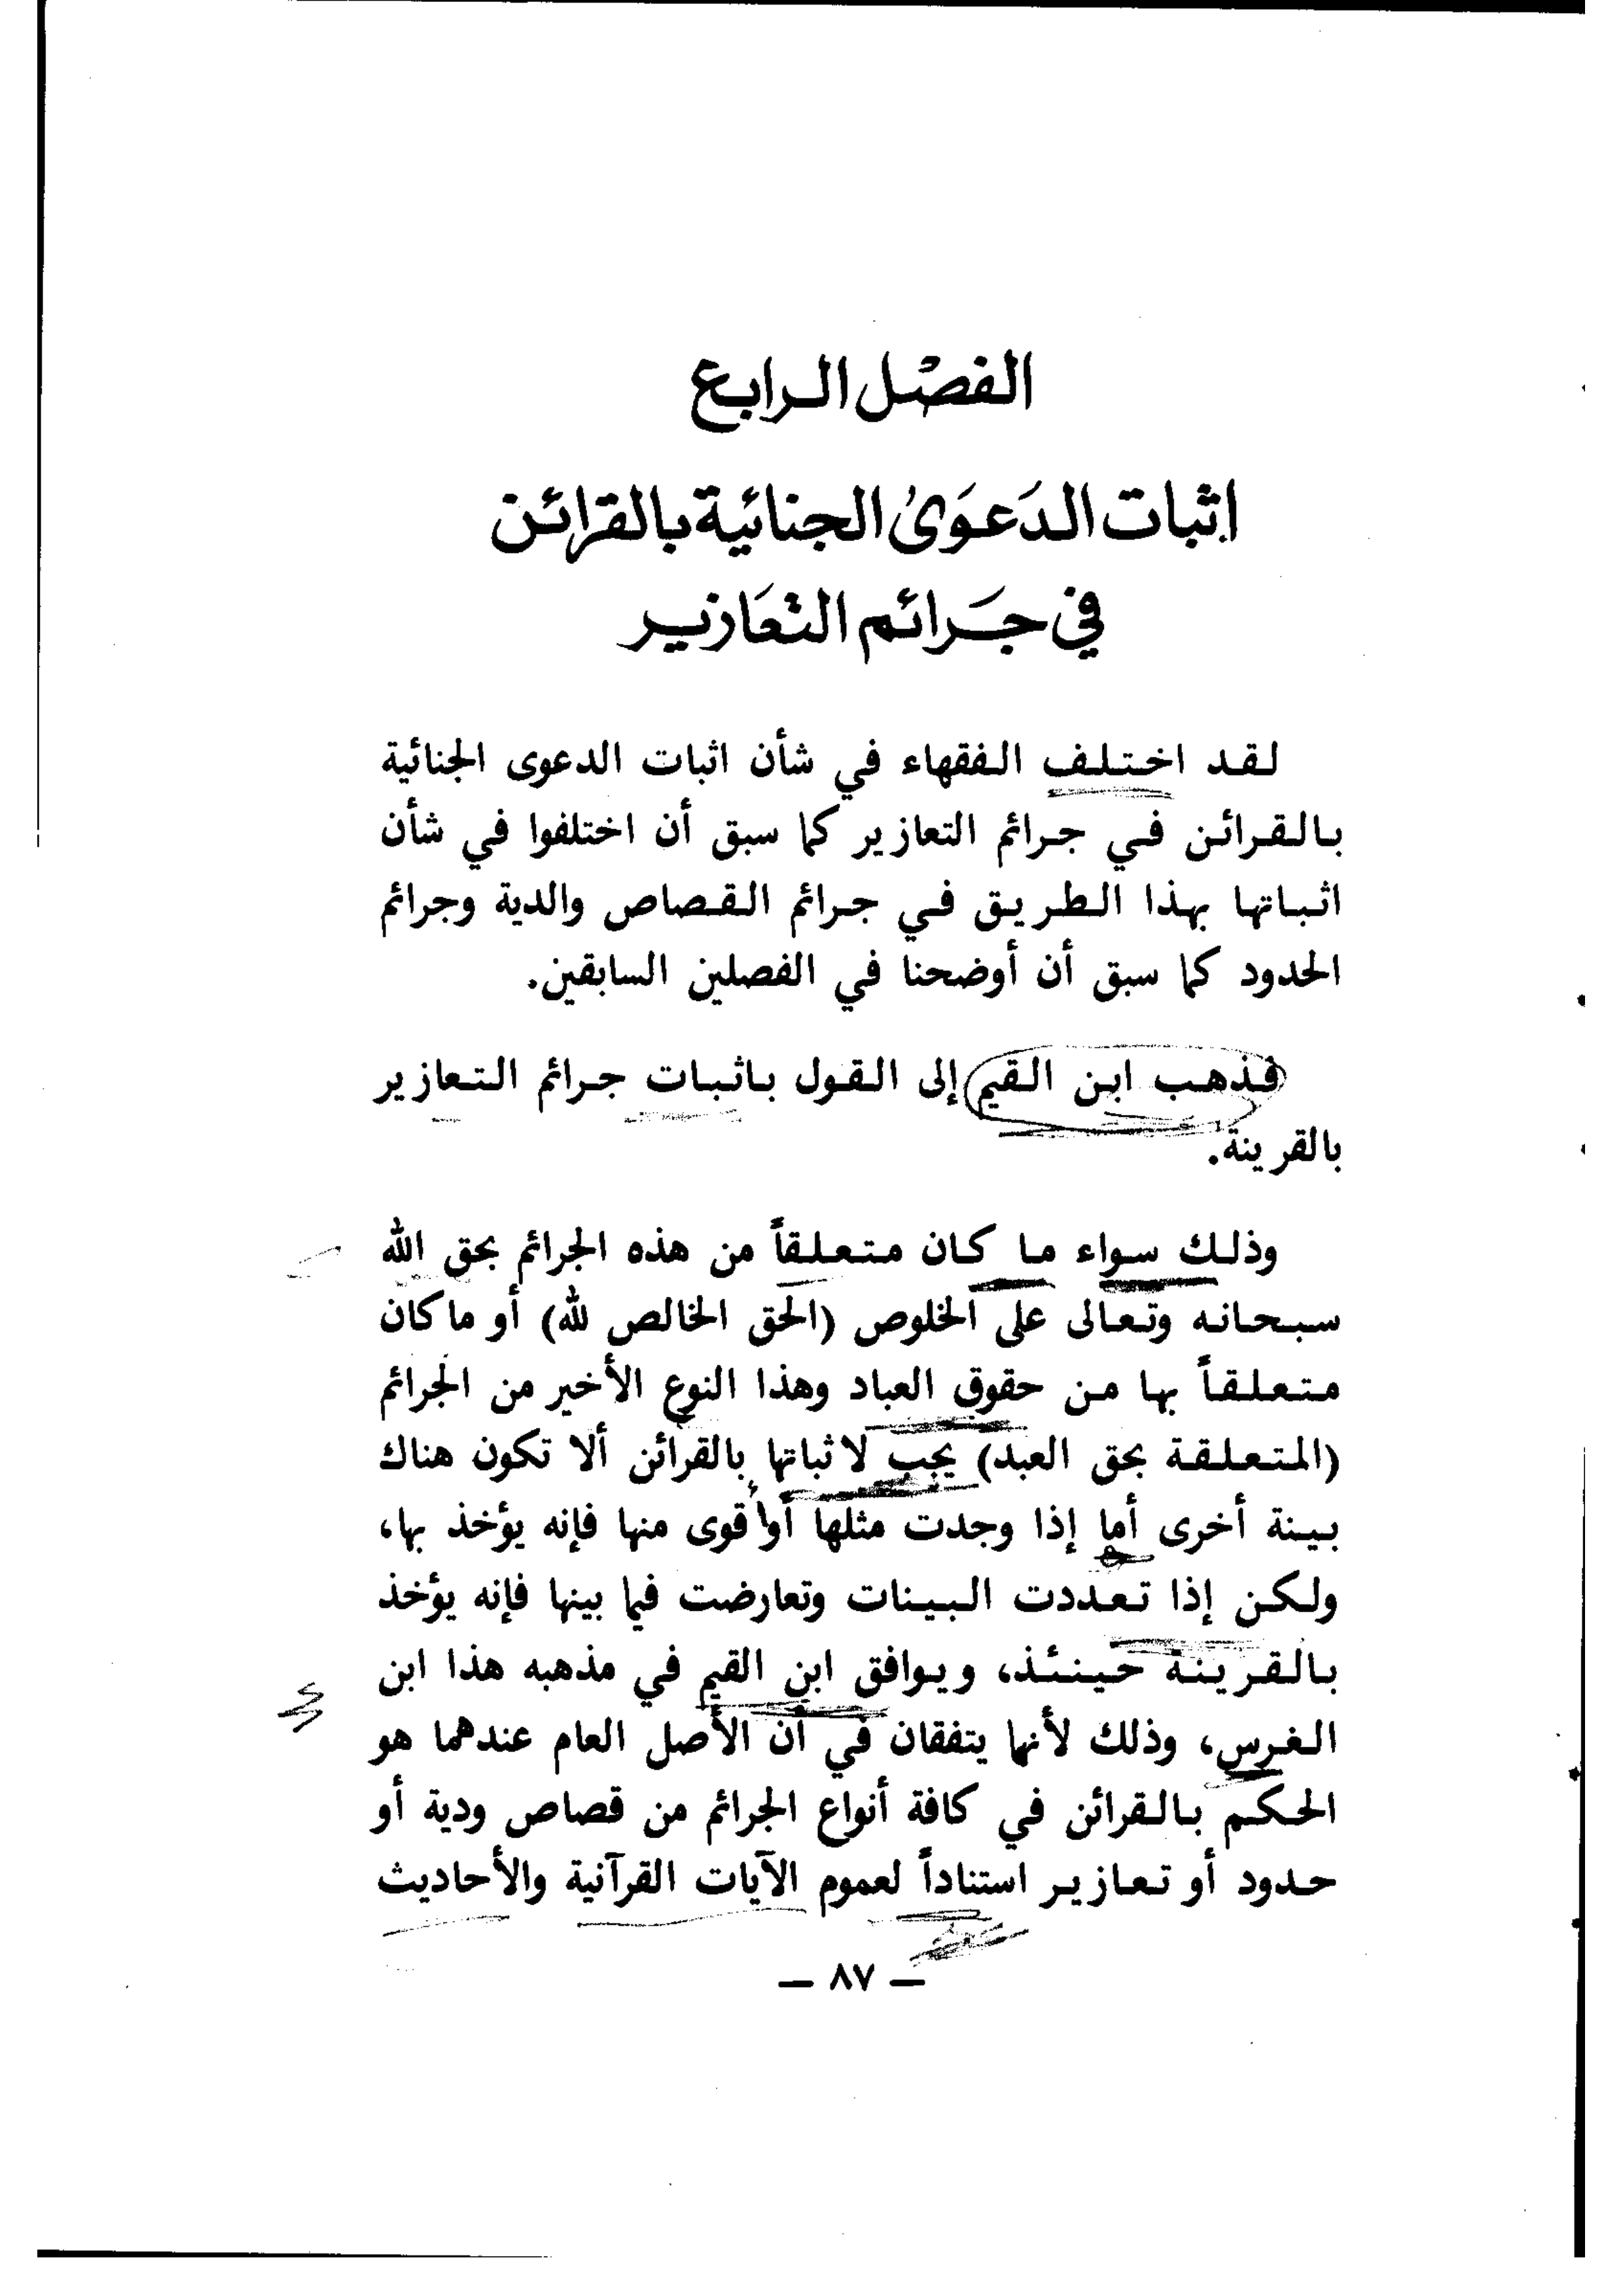 الفصل الرابع
اثبات الدعوى الجنائية بالقرائن
في جرائم التعازير
لقد اختلف الفقهاء في شأن اثبات الدعوى الجنائية
بالقرائن في جرائم التعازير كما سبق أن اختلفوا في شأن
اثباتها بهذا الطريق في جرائم القصاص والدية وجرائم
الحدود كما سبق أن أوضحنا في الفصلين السابقين.
فذهب ابن القيم إلى القول باثبات جرائم التعازير
بالقرينة.
وذلك سواء ما كان متعلقاً من هذه الجرائم بحق الله
سبحانه وتعالى على الخلوص (الحق الخالص لله) أو ما كان
متعلقاً بها من حقوق العباد وهذا النوع الأخير من الجرائم
(المتعلقة بحق العبد) يجب لاثباتها بالقرائن ألا تكون هناك
بينة أخرى أما إذا وجدت مثلها أو أقوى منها فإنه يؤخذ بها،
ولكن إذا تعددت البينات وتعارضت فيما بينها فإنه يؤخذ
بالقرينة حينئذ، ويوافق ابن القيم في مذهبه هذا ابن
الغرس، وذلك لأنهما يتفقان في أن الأصل العام عندهما هو
الحكم بالقرائن في كافة أنواع الجرائم من قصاص ودية أو
حدود أو تعازير استناداً لعموم الآيات القرآنية والأحاديث
— ٨٧ —